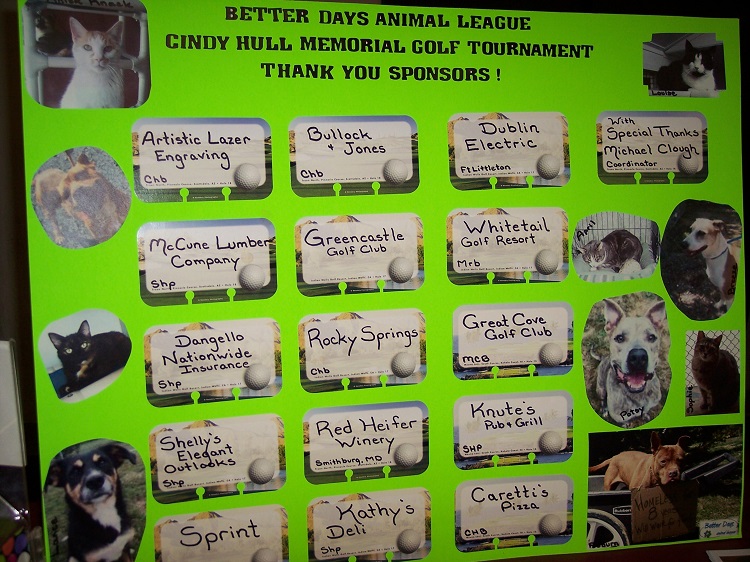 BETTER DAYS ANIMAL LEAGUE
CINDY HULL MEMORIAL GOLF TOURNAMENT
THANK YOU SPONSORS !
Louise
Artistic Lazer
Engraving
Chb
Bullock
& Jones
Chb
Dublin
Electric
Ft Littleton
With
Special Thanks
Michael Clough
Coordinator
McCune Lumber
Company
Shp
Greencastle
Golf Club
Whitetail
Golf Resort
Mrb
April
Dangello
Nationwide
Insurance
Shp
Rocky Springs
Chb
Great Cove
Golf Club
McB
Patsy
Sophie
Shelly's
Elegant
Outlooks
Shp
Red Heifer
Winery
Smithburg, MD
Knute's
Pub & Grill
SHP
Sprint
Kathy's
Deli
Shp
Caretti's
Pizza
CHB
Better Days